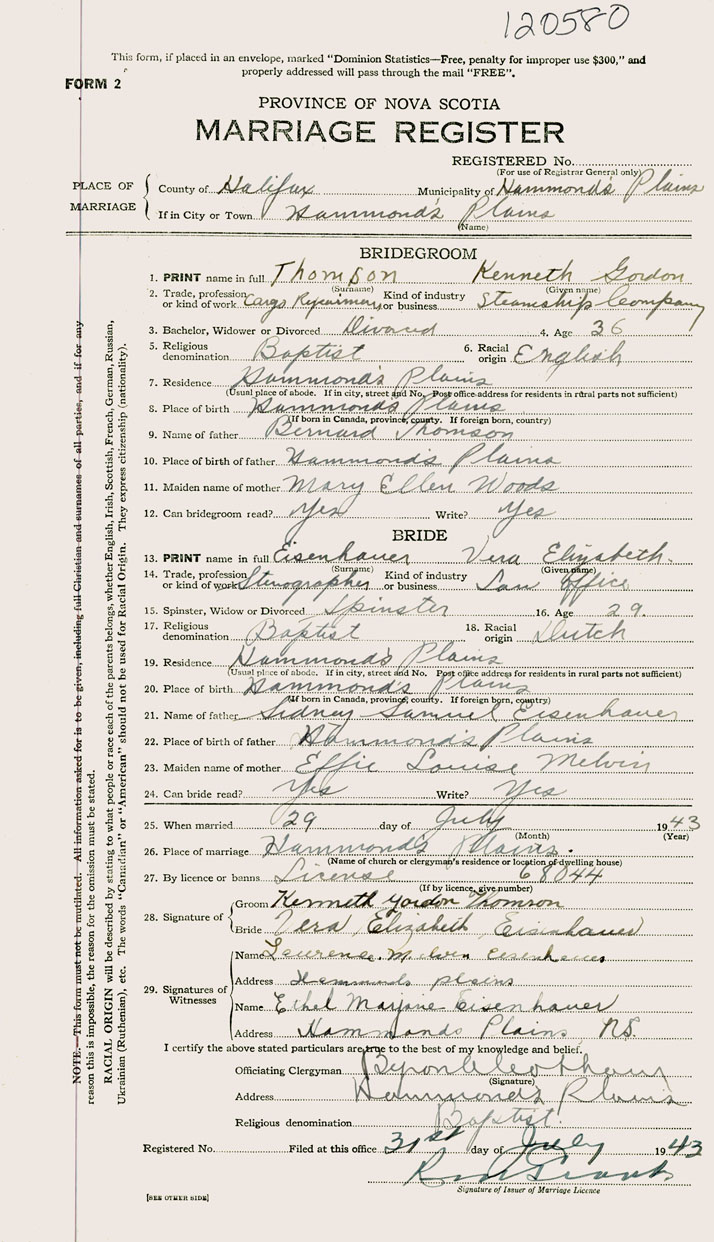 120580
This form, if placed in an envelope, marked "Dominion Statistics—Free, penalty for improper use $300," and
properly addressed will pass through the mail "FREE".
FORM 2
PROVINCE OF NOVA SCOTIA
MARRIAGE REGISTER
REGISTERED No.
(For use of Registrar General only)
PLACE OF MARRIAGE
County of Halifax Municipality of Hammonds Plains
If in City or Town Hammond's Plains
(Name)
BRIDEGROOM
1. PRINT name in full Thomson Kenneth Gordon
(Surname) (Given name)
2. Trade, profession or kind of work Cargo Repairman Kind of industry or business Steamship Company
3. Bachelor, Widower or Divorced Divorced 4. Age 36
5. Religious denomination Baptist 6. Racial origin English
7. Residence Hammond's Plains
(Usual place of abode. If in city, street and No. Post office address for residents in rural parts not sufficient)
8. Place of birth Hammonds Plains
(If born in Canada, province, county. If foreign born, country)
9. Name of father Bernard Thomson
10. Place of birth of father Hammond's Plains
11. Maiden name of mother Mary Ellen Woods
12. Can bridegroom read? Yes Write? Yes
BRIDE
13. PRINT name in full Eisenhauer Vera Elizabeth.
(Surname) (Given name)
14. Trade, profession or kind of work Stenographer Kind of industry or business Law Office
15. Spinster, Widow or Divorced Spinster 16. Age 29.
17. Religious denomination Baptist 18. Racial origin Dutch
19. Residence Hammond's Plains
(Usual place of abode. If in city, street and No. Post office address for residents in rural parts not sufficient)
20. Place of birth Hammond's Plains
(If born in Canada, province, county. If foreign born, country)
21. Name of father Sidney Samuel Eisenhauer
22. Place of birth of father Hammond's Plains
23. Maiden name of mother Effie Louise Melvin
24. Can bride read? Yes Write? Yes
25. When married 29 day of July 1943
(Month) (Year)
26. Place of marriage Hammond's Plains.
(Name of church or clergyman's residence or location of dwelling house)
27. By licence or banns License 68044
(If by licence, give number)
28. Signature of
Groom Kenneth Gordon Thomson
Bride Vera Elizabeth Eisenhauer
29. Signatures of Witnesses
Name Laurense Melvin Eisenhauer
Address Hammonds plains
Name Ethel Marjorie Eisenhauer
Address Hammonds Plains N.S.
I certify the above stated particulars are true to the best of my knowledge and belief.
Officiating Clergyman Byron
(Signature)
Address Hammond's Plains
Religious denomination Baptist.
Registered No. Filed at this office 31st day of July 1943
Grant
Signature of Issuer of Marriage Licence
[SEE OTHER SIDE]
NOTE.—This form must not be mutilated. All information asked for is to be given, including full Christian and surnames of all parties, and if for any
reason this is impossible, the reason for the omission must be stated.
RACIAL ORIGIN will be described by stating to what people or race each of the parents belongs, whether English, Irish, Scottish, French, German, Russian,
Ukrainian (Ruthenian), etc. The words "Canadian" or "American" should not be used for Racial Origin. They express citizenship (nationality).